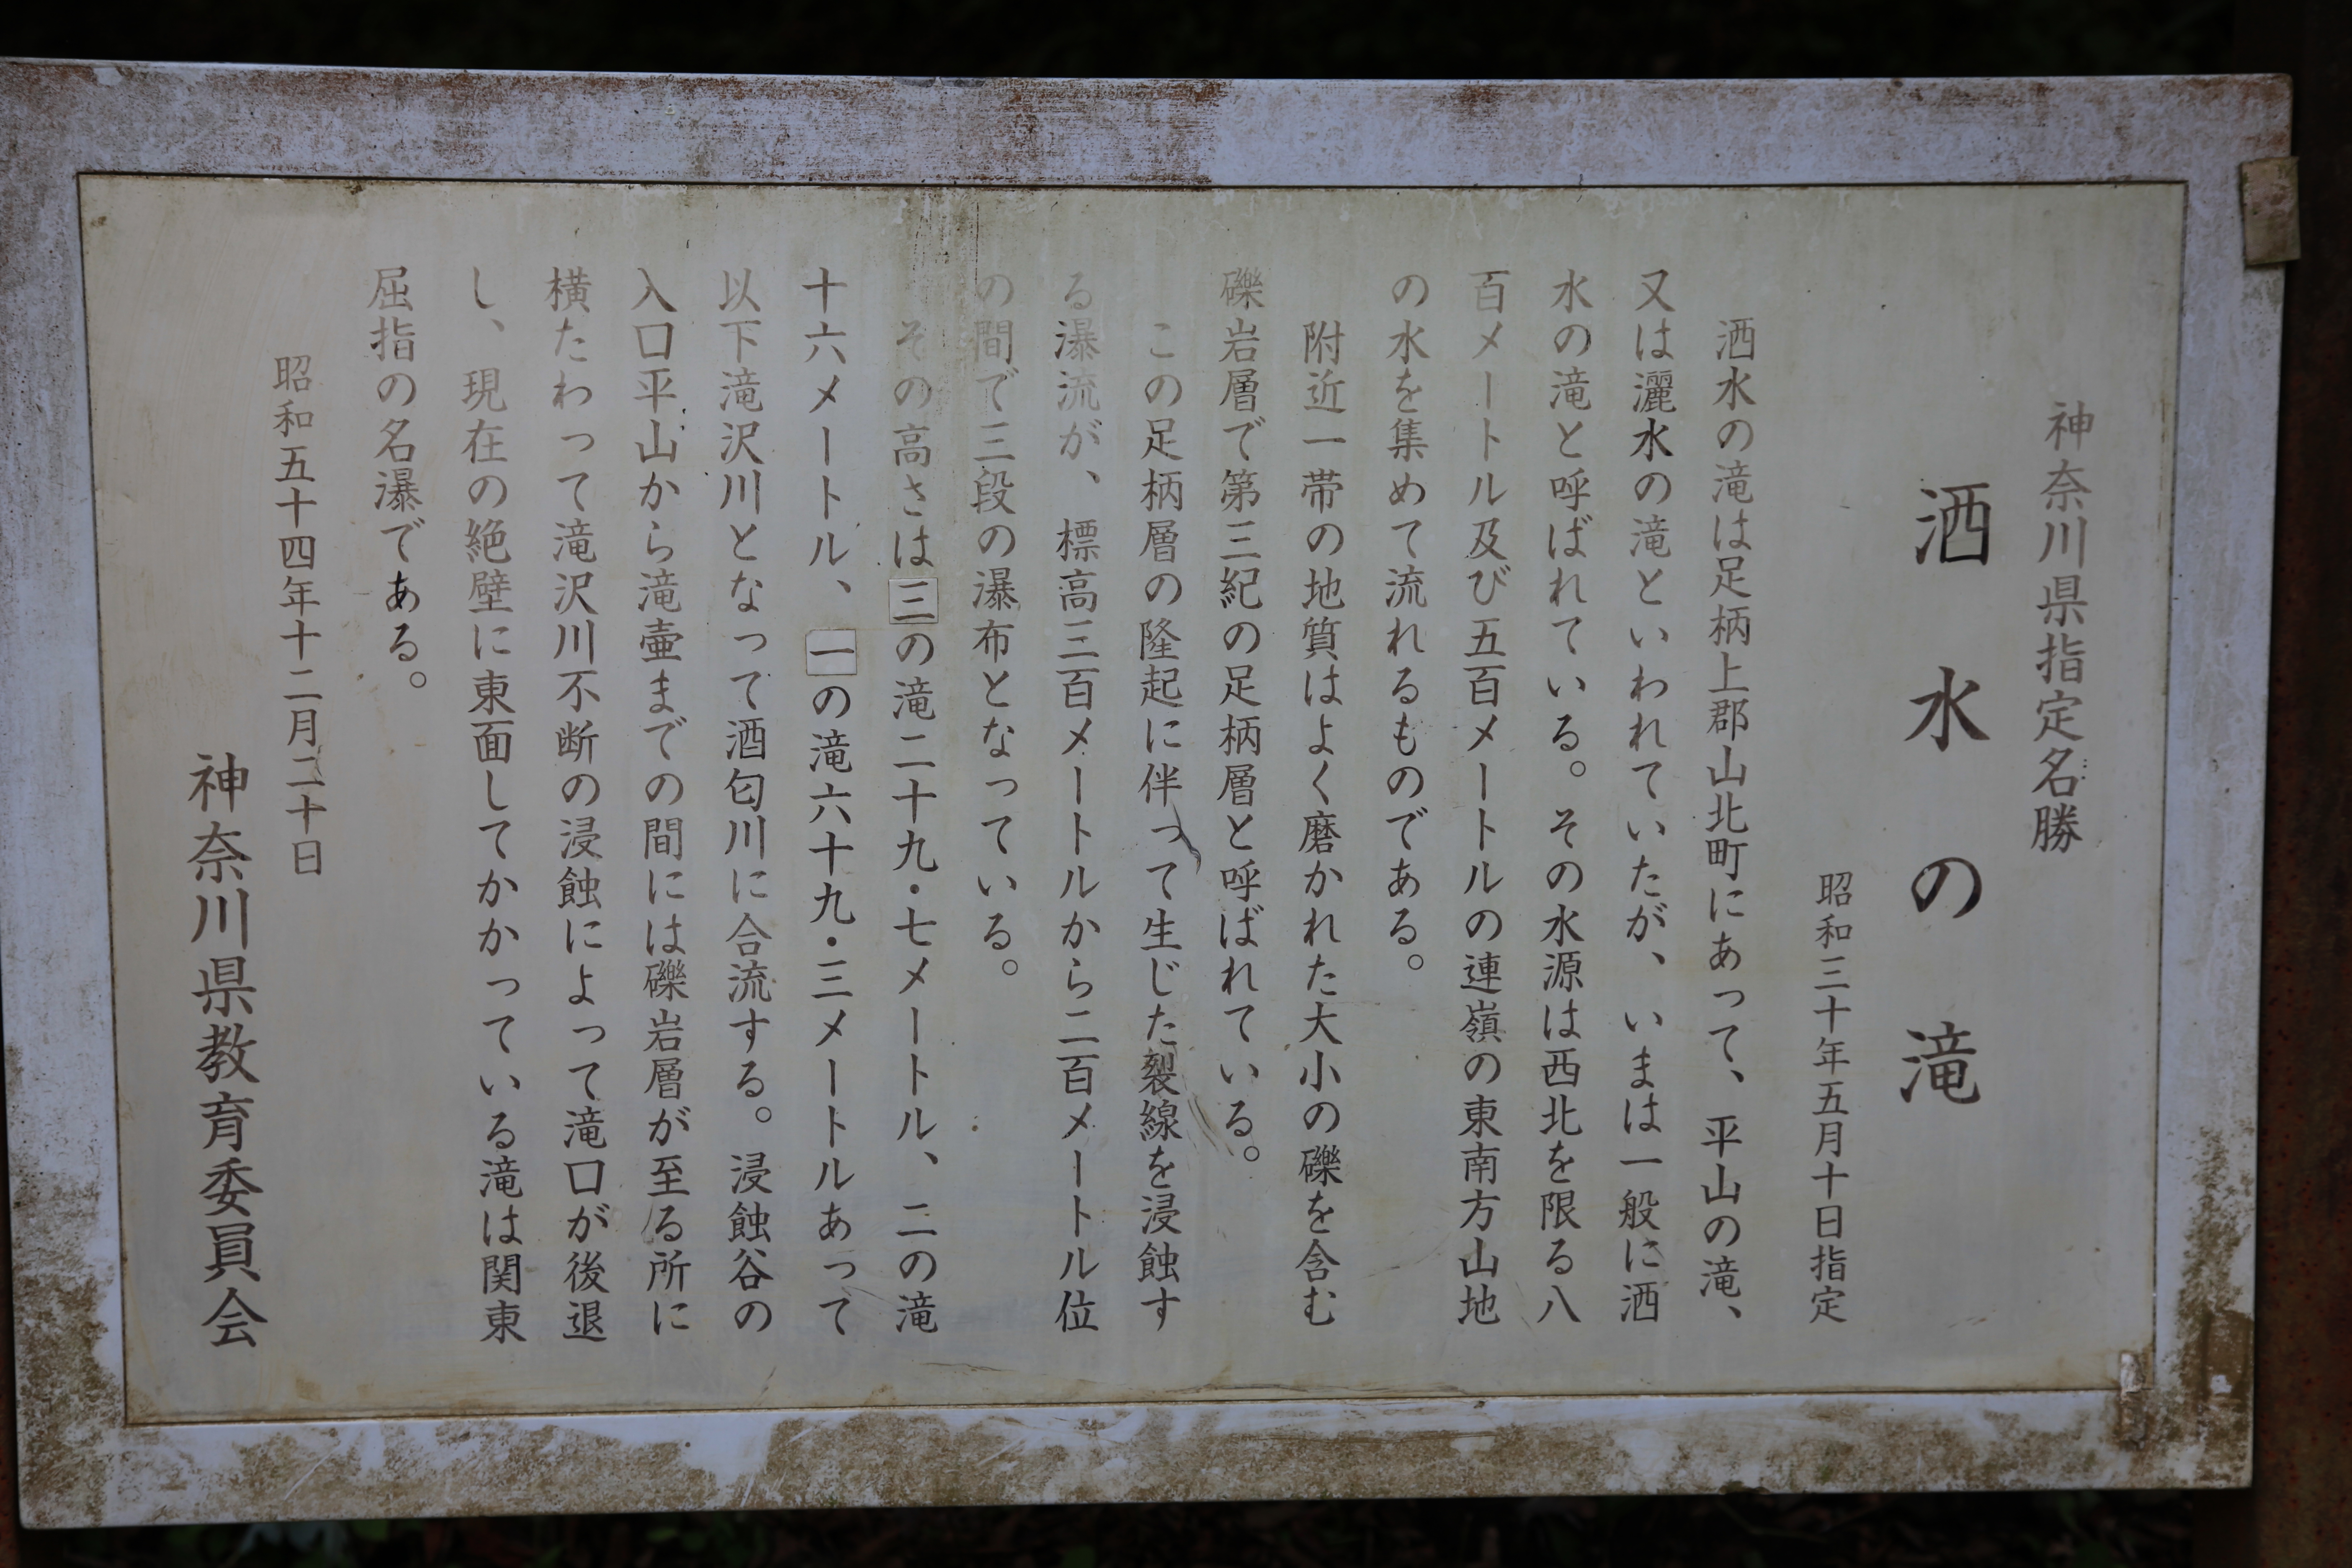 神奈川県指定名勝
洒水の滝
昭和三十年五月十日指定
洒水の滝は足柄上郡山北町にあって、平山の滝、
又は灑水の滝といわれていたが、いまは一般に洒
水の滝と呼ばれている。その水源は西北を限る八
百メートル及び五百メートルの連嶺の東南方山地
の水を集めて流れるものである。
附近一帯の地質はよく磨かれた大小の礫を含む
礫岩層で第三紀の足柄層と呼ばれている。
この足柄層の隆起に伴って生じた裂線を浸蝕す
る瀑流が、標高三百メートルから二百メートル位
の間で三段の瀑布となっている。
その高さは三の滝二十九・七メートル、二の滝
十六メートル、一の滝六十九・三メートルあって
以下滝沢川となって酒匂川に合流する。浸蝕谷の
入口平山から滝壷までの間には礫岩層が至る所に
横たわって滝沢川不断の浸蝕によって滝口が後退
し、現在の絶壁に東面してかかっている滝は関東
屈指の名瀑である。
昭和五十四年十二月二十日
神奈川県教育委員会